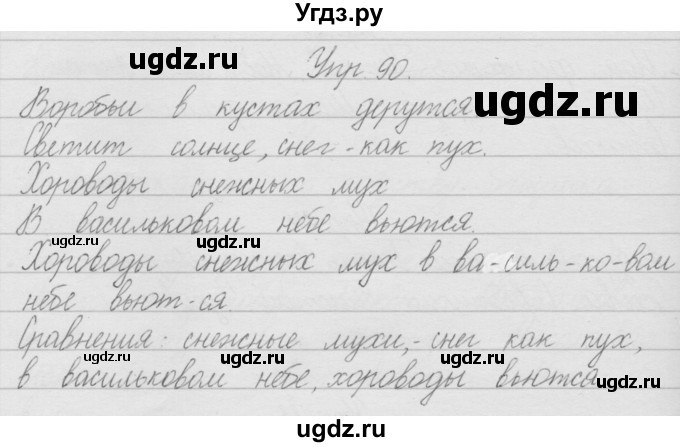 Угдз.ру
Упр. 90.
Воробьи в кустах дерутся
Светит солнце, снег - как пух.
Хороводы снежных мух
В васильковом небе вьются.
Хороводы снежных мух в ва-силь-ко-вом
небе вьют-ся.
Сравнения: снежные мухи, - снег как пух,
в васильковом небе, хороводы вьются
ugdz.ru
ugdz.ru
ugdz.ru
ugdz.ru
ugdz.ru
ugdz.ru
ugdz.ru
ugdz.ru
ugdz.ru
ugdz.ru